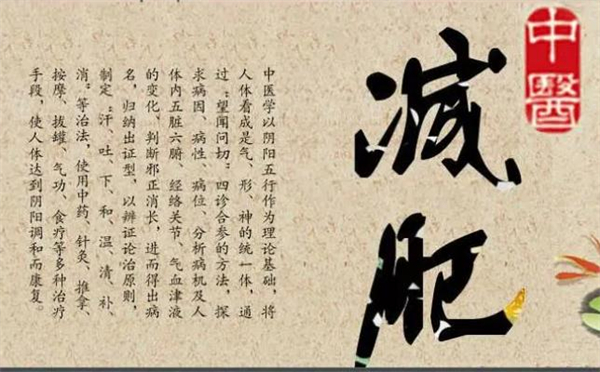 中醫
减肥
中医学以阴阳五行作为理论基础，将
人体看成是气、形、神的统一体，通
过“望闻问切”四诊合参的方法，探
求病因、病性、病位、分析病机及人
体内五脏六腑、经络关节、气血津液
的变化、判断邪正消长，进而得出病
名，归纳出证型，以辨证论治原则，
制定“汗、吐、下、和、温、清、补、
消”等治法，使用中药、针灸、推拿、
按摩、拔罐、气功、食疗等多种治疗
手段，使人体达到阴阳调和而康复。